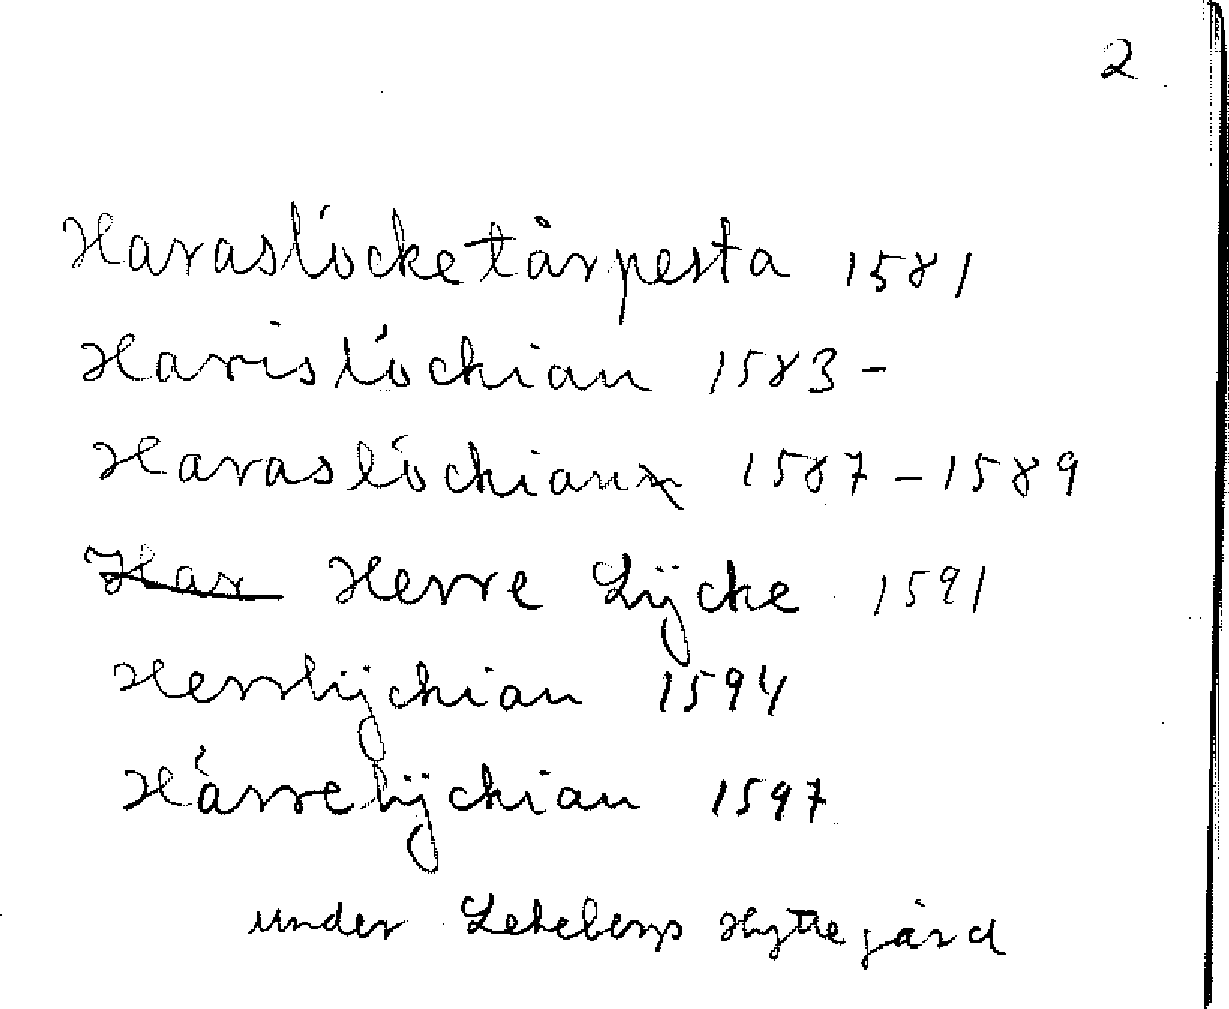 2
Haraslöcketårpesta 1581
Harislöckian 1583-
Haraslöckian 1587-1589
Har Herre Lÿcke 1591
Herrlÿckian 1594
Härrelÿckian 1597
under Lekebergs Hyttegård